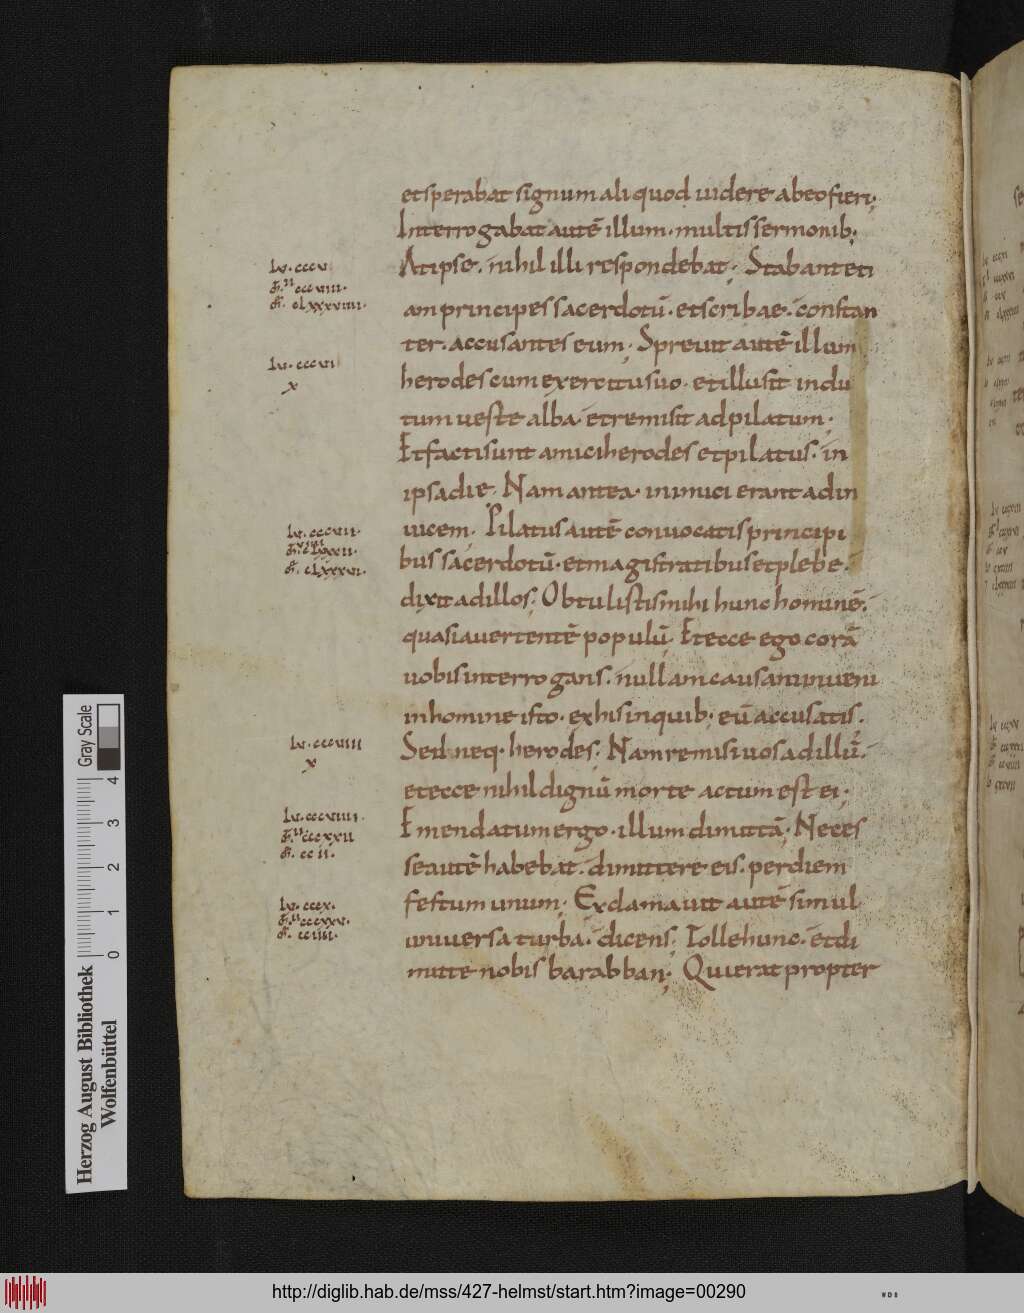 et sperabat signum aliquod uidere ab eo fieri;
Interrogabat autē illum · multis sermonib;
At ipse · nihil illi respondebat; Stabant eti
am principes sacerdotū · et scribae · constan
ter · accusantes eum; Spreuit autē illum
herodes cum exercitu suo · et illusit indu
tum ueste alba · et remisit ad pilatum;
Et facti sunt amici herodes et pilatus · in
ipsa die · Nam antea · inimici erant ad in
uicem · Pilatus autē conuocatis principi
bus sacerdotū · et magistratibus et plebe ·
dixit ad illos; Obtulistis mihi hunc hominē ·
quasi auertentē populū; Et ecce ego corā
uobis interrogans · nullam causam inueni
in homine isto · ex his in quib; eū accusatis ·
Sed neq; herodes; Nam remisi uos ad illū ·
et ecce nihil dignū morte actum est ei;
Emendatum ergo · illum dimittā; Neces
se autē habebat · dimittere eis · per diem
festum unum; Exclamauit autē simul
uniuersa turba · dicens; Tolle hunc · et di
mitte nobis barabban; Qui erat propter
lv · cccv
cccviii ·
clxxxviiii ·
lv · cccvi
x
lv · cccvii ·
clxxxvi ·
lv · cccviii
x
lv · cccviiii ·
cccxxii
cc ii ·
lv · cccx ·
cccxxv ·
cciiii ·
Gray Scale
4
3
2
1
0
Herzog August Bibliothek
Wolfenbüttel
http://diglib.hab.de/mss/427-helmst/start.htm?image=00290